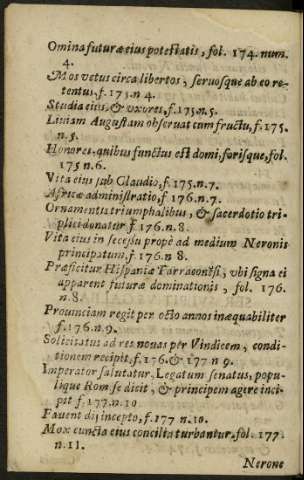 Omina futuræ eius potestatis, fol. 174. num.
4.
Mos vetus circa libertos, seruosque ab eo re-
tentus, f. 175. n 4.
Studia eius, & vxores, f. 175. n. 5.
Liuiam Augustam obseruat cum fructu, f. 175.
n. 5.
Honores, quibus functus est domi, forisque, fol.
175 n. 6.
Vita eius sub Claudio, f. 175. n. 7.
Africæ administratio, f 176. n. 7.
Ornamentis triumphalibus, & sacerdotio tri-
plici donatur f 176. n. 8.
Vita eius in secessu propè ad medium Neronis
principatum, f. 176. n 8.
Præficitur Hispaniæ Tarraconẽsi, vbi signa ei
apparent futuræ dominationis, fol. 176.
n. 8.
Prouinciam regit per octo annos inæquabiliter
f. 176. n. 9.
Solicitatus ad res nouas per Vindicem, condi-
tionem recipit, f. 176. & 177 n 9.
Imperator salutatur, Legatum senatus, popu-
lique Rom se dicit, & principem agere inci-
pit f. 177. n. 10
Fauent dij incepto, f. 177 n. 10.
Mox cuncta eius concilia turbantur, fol. 177
n. 11.
Nerone